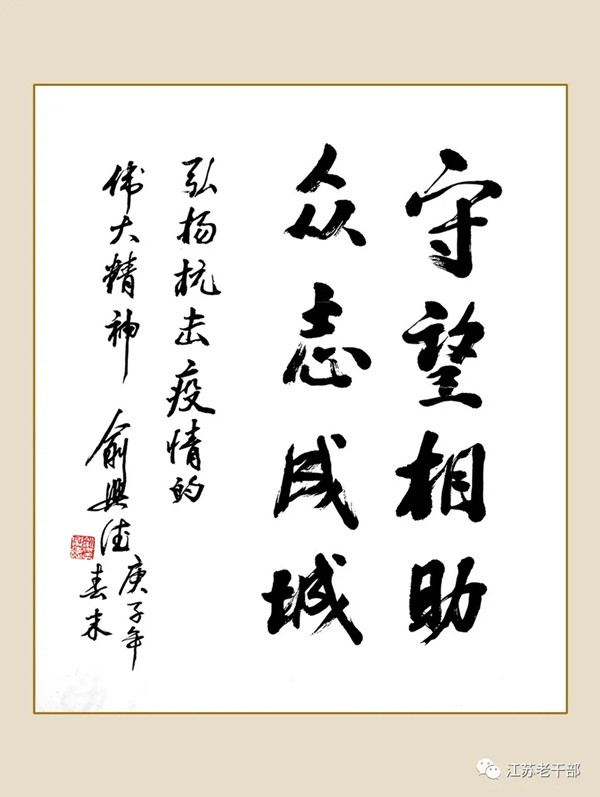 守望相助
众志成城
弘扬抗击疫情的
伟大精神 俞兴德
庚子年
春末
江苏老干部